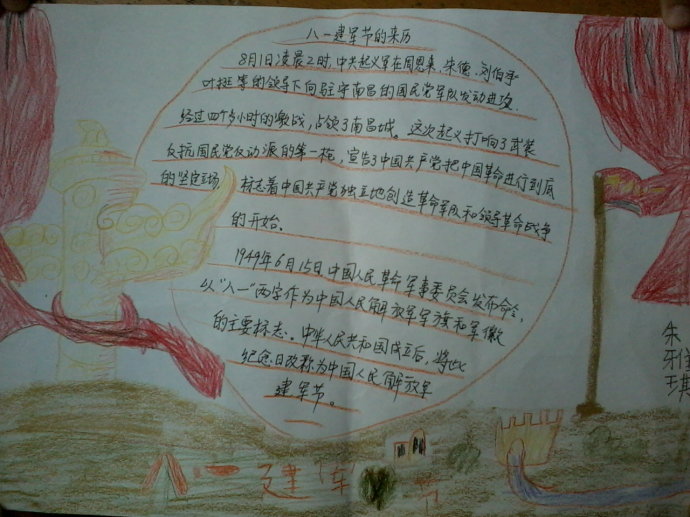 八一建军节的来历
8月1日凌晨2时,中共起义军在周恩来、朱德、刘伯承
叶挺等的领导下向驻守南昌的国民党军队发动进攻.
经过四个多小时的激战,占领了南昌城。这次起义打响了武装
反抗国民党反动派的第一枪,宣告了中国共产党把中国革命进行到底
的坚定立场,标志着中国共产党独立地创造革命军队和领导革命战争
的开始。
1949年6月15日中国人民革命军事委员会发布命令,
以“八一”两字作为中国人民解放军军旗和军徽
的主要标志。中华人民共和国成立后,将此
纪念日改称为中国人民解放军
建军节。
朱
雅
琪
八一建军节